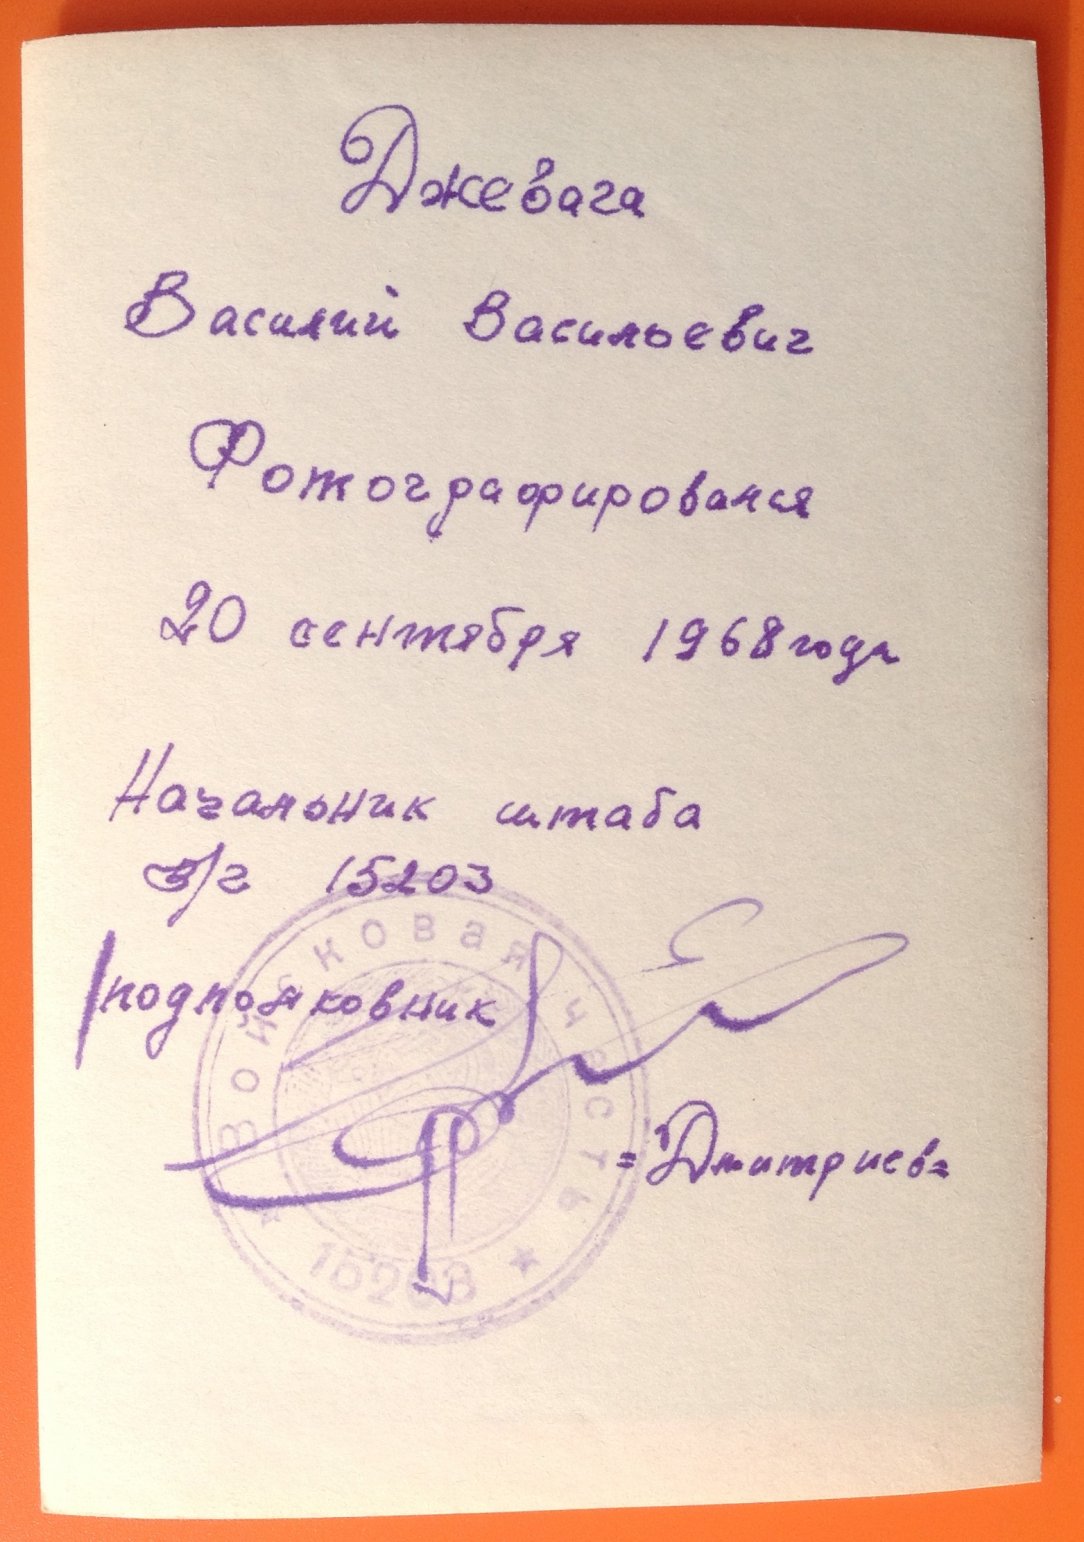 Джевага
Василий Васильевич
Фотографировался
20 сентября 1968 года
Начальник штаба
в/ч 15203
подполковник
=Дмитриев=
Войсковая часть
★ 15203 ★